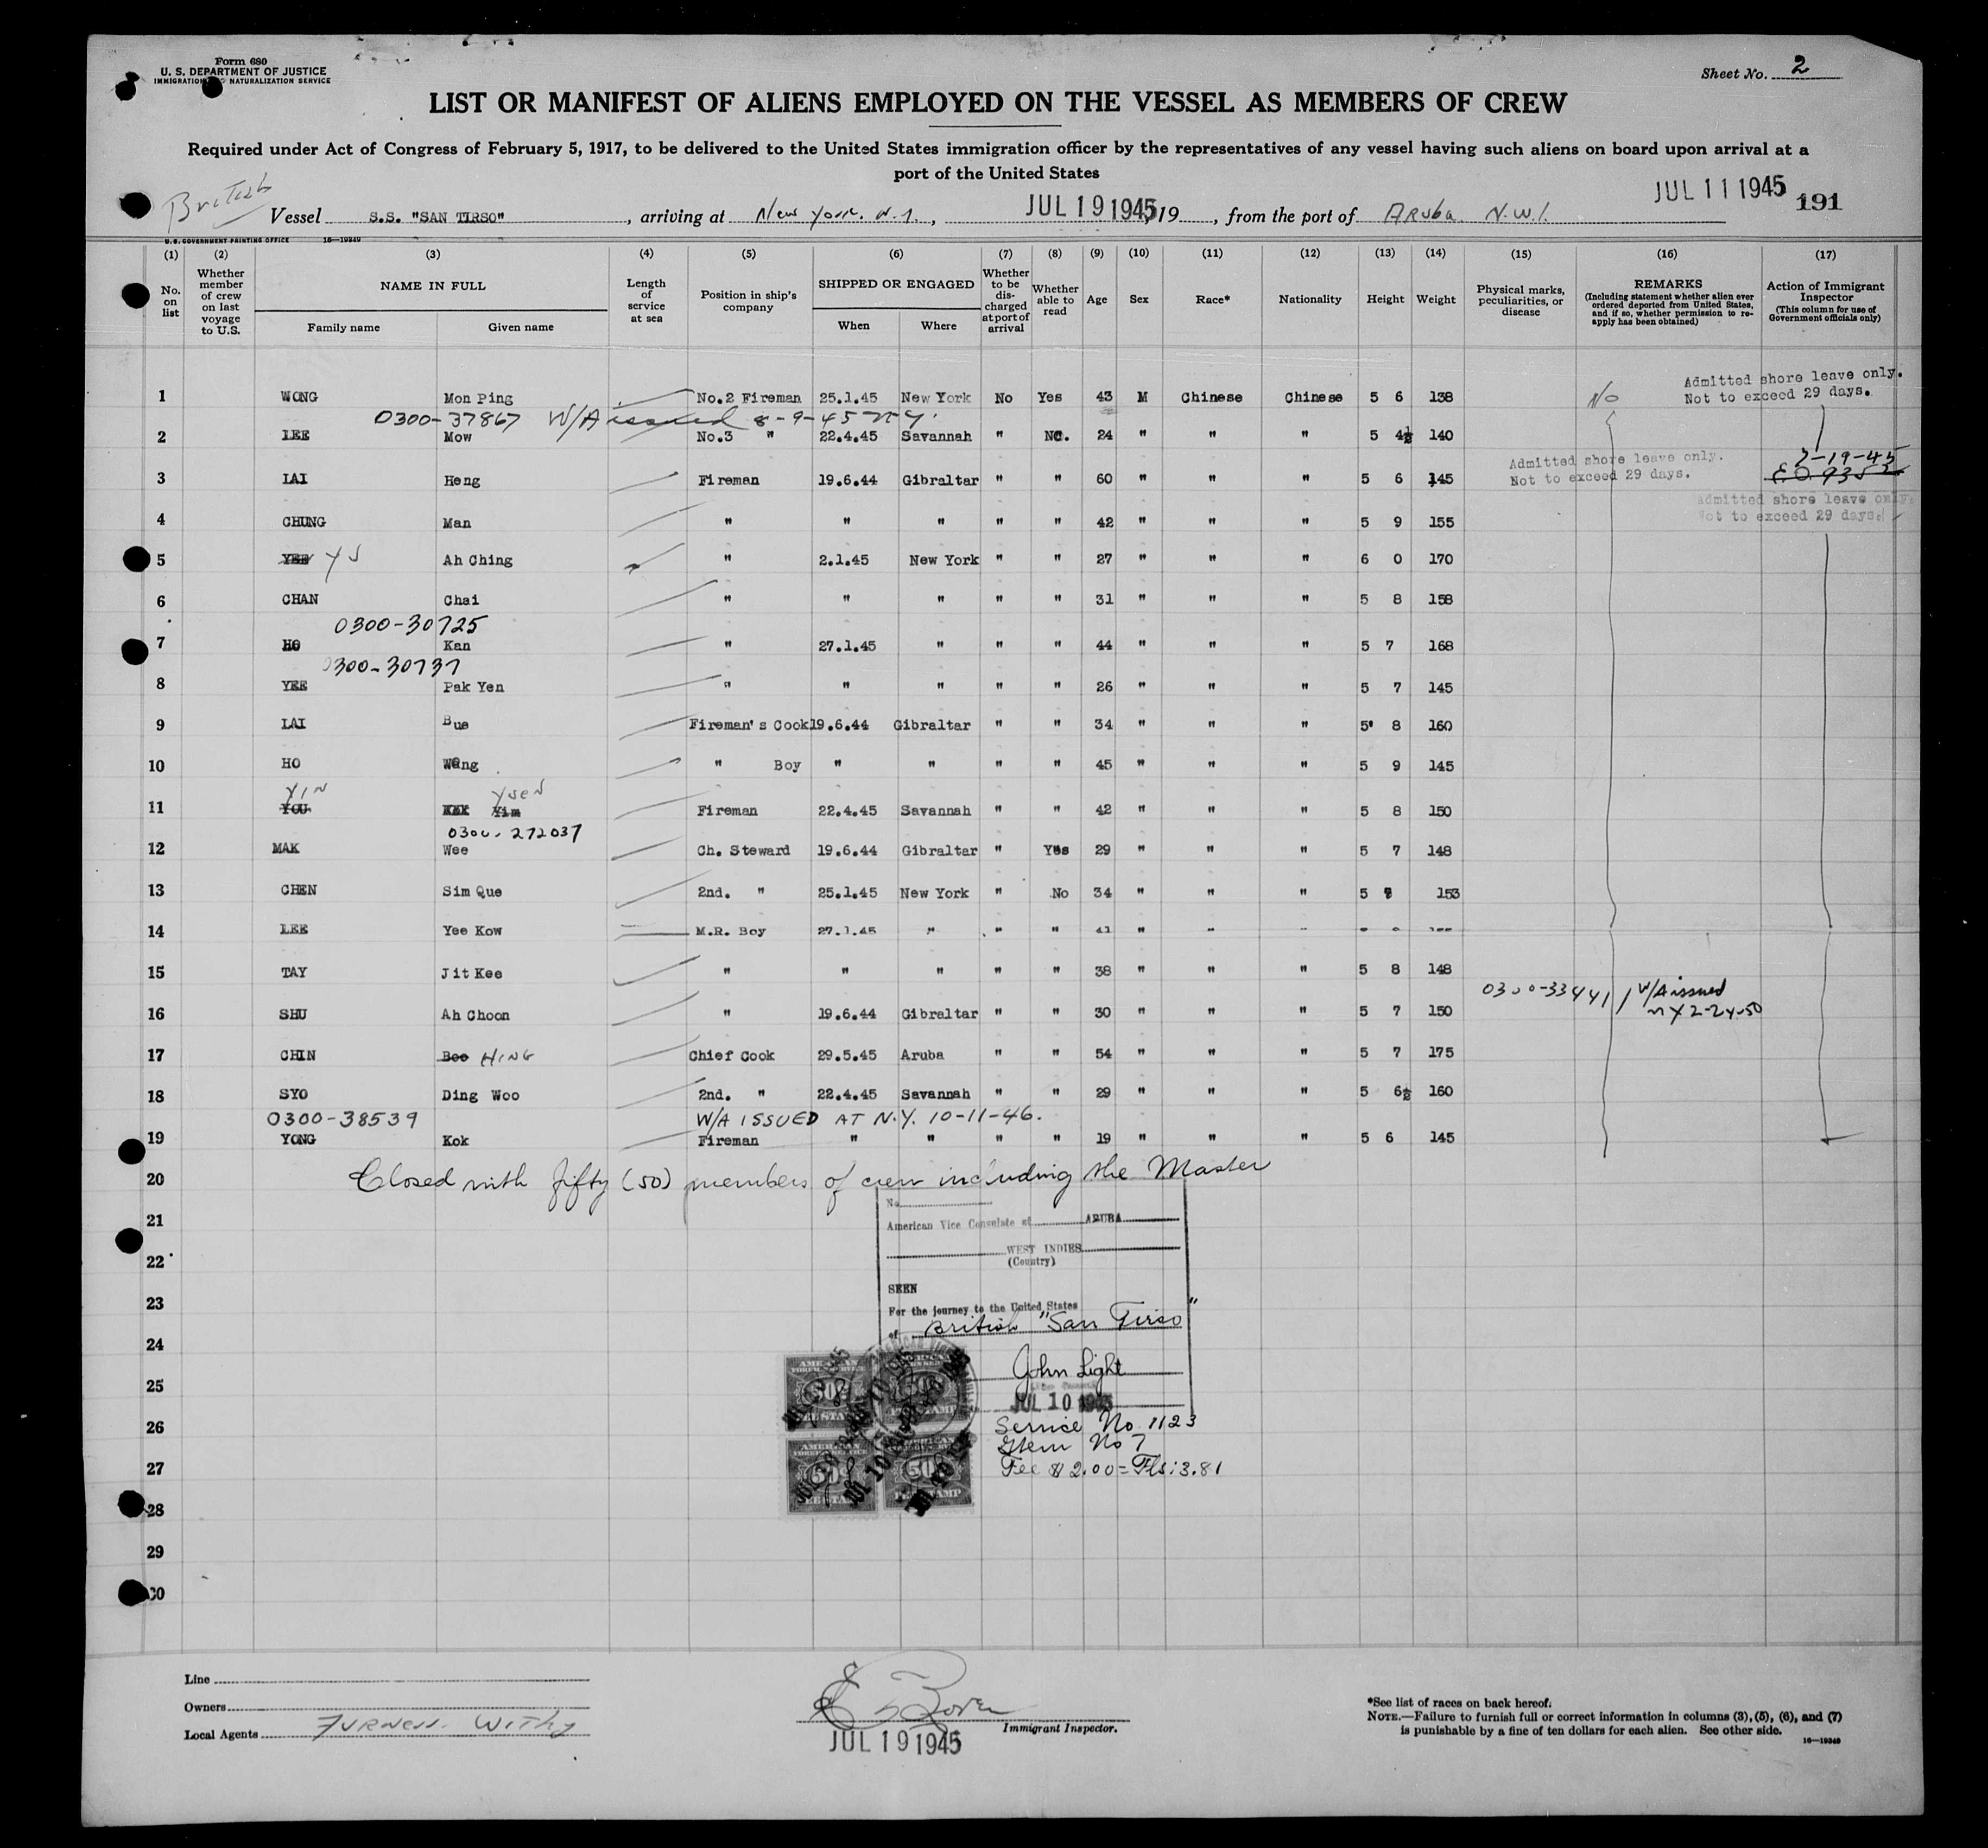 Form 680
U. S. DEPARTMENT OF JUSTICE
IMMIGRATION NATURALIZATION SERVICE
Sheet No. 2
LIST OR MANIFEST OF ALIENS EMPLOYED ON THE VESSEL AS MEMBERS OF CREW
Required under Act of Congress of February 5, 1917, to be delivered to the United States immigration officer by the representatives of any vessel having such aliens on board upon arrival at a
port of the United States
JUL 11 1945
British
Vessel S.S. "SAN TIRSO", arriving at New York. N.Y., JUL 19 1945, 19, from the port of Aruba N.W.I. 191
U.S. GOVERNMENT PRINTING OFFICE 16—19349
(1) (2) (3) (4) (5) (6) (7) (8) (9) (10) (11) (12) (13) (14) (15) (16) (17)
No. on list
Whether member of crew on last voyage to U.S.
NAME IN FULL
Family name Given name
Length of service at sea
Position in ship's company
SHIPPED OR ENGAGED
When Where
Whether to be discharged at port of arrival
Whether able to read
Age
Sex
Race*
Nationality
Height
Weight
Physical marks, peculiarities, or disease
REMARKS
(Including statement whether alien ever ordered deported from United States, and if so, whether permission to re-apply has been obtained)
Action of Immigrant Inspector
(This column for use of Government officials only)
1 WONG Mon Ping No.2 Fireman 25.1.45 New York No Yes 43 M Chinese Chinese 5 6 138 No Admitted shore leave only. Not to exceed 29 days.
0300-37867 W/A issued 8-9-45 NY.
2 LEE Mow No.3 " 22.4.45 Savannah " No. 24 " " " 5 4½ 140
Admitted shore leave only. Not to exceed 29 days. 7-19-45
E.O. 9352
3 LAI Heng Fireman 19.6.44 Gibraltar " " 60 " " " 5 6 145
Admitted shore leave only. Not to exceed 29 days.
4 CHUNG Man " " " " " 42 " " " 5 9 155
5 YEE YS Ah Ching " 2.1.45 New York " " 27 " " " 6 0 170
6 CHAN Chai " " " " " 31 " " " 5 8 158
0300-30725
7 HO Kan " 27.1.45 " " " 44 " " " 5 7 168
0300-30737
8 YEE Pak Yen " " " " " 26 " " " 5 7 145
9 LAI Bue Fireman's Cook 19.6.44 Gibraltar " " 34 " " " 5' 8 160
10 HO Wang " Boy " " " " 45 " " " 5 9 145
YIN YSEN
11 YOU Yim Fireman 22.4.45 Savannah " " 42 " " " 5 8 150
0300-272037
12 MAK Wee Ch. Steward 19.6.44 Gibraltar " Yes 29 " " " 5 7 148
13 CHEN Sim Que 2nd. " 25.1.45 New York " No 34 " " " 5 153
14 LEE Yee Kow M.R. Boy 27.1.45 " " " 41 "
15 TAY Jit Kee " " " " " 38 " " " 5 8 148
0300-33441 / W/A issued NY 2-24-50
16 SHU Ah Choon " 19.6.44 Gibraltar " " 30 " " " 5 7 150
17 CHIN Boo HING Chief Cook 29.5.45 Aruba " " 54 " " " 5 7 175
18 SYO Ding Woo 2nd. " 22.4.45 Savannah " " 29 " " " 5 6½ 160
0300-38539 W/A ISSUED AT N.Y. 10-11-46.
19 YONG Kok Fireman " " " " 19 " " " 5 6 145
20 Closed with fifty (50) members of crew including the Master
No.
21 American Vice Consulate at ARUBA
WEST INDIES
22 (Country)
SEEN
23 For the journey to the United States
of British "San Tirso"
24
John Light
25 JUL 10 1945
26 Service No 1123
Item No 7
27 Fee $2.00 = Fls: 3.81
28
29
30
Line
Owners
Local Agents Furness Withy
Immigrant Inspector.
JUL 19 1945
*See list of races on back hereof.
NOTE.—Failure to furnish full or correct information in columns (3), (5), (6), and (7)
is punishable by a fine of ten dollars for each alien. See other side.
16—19349